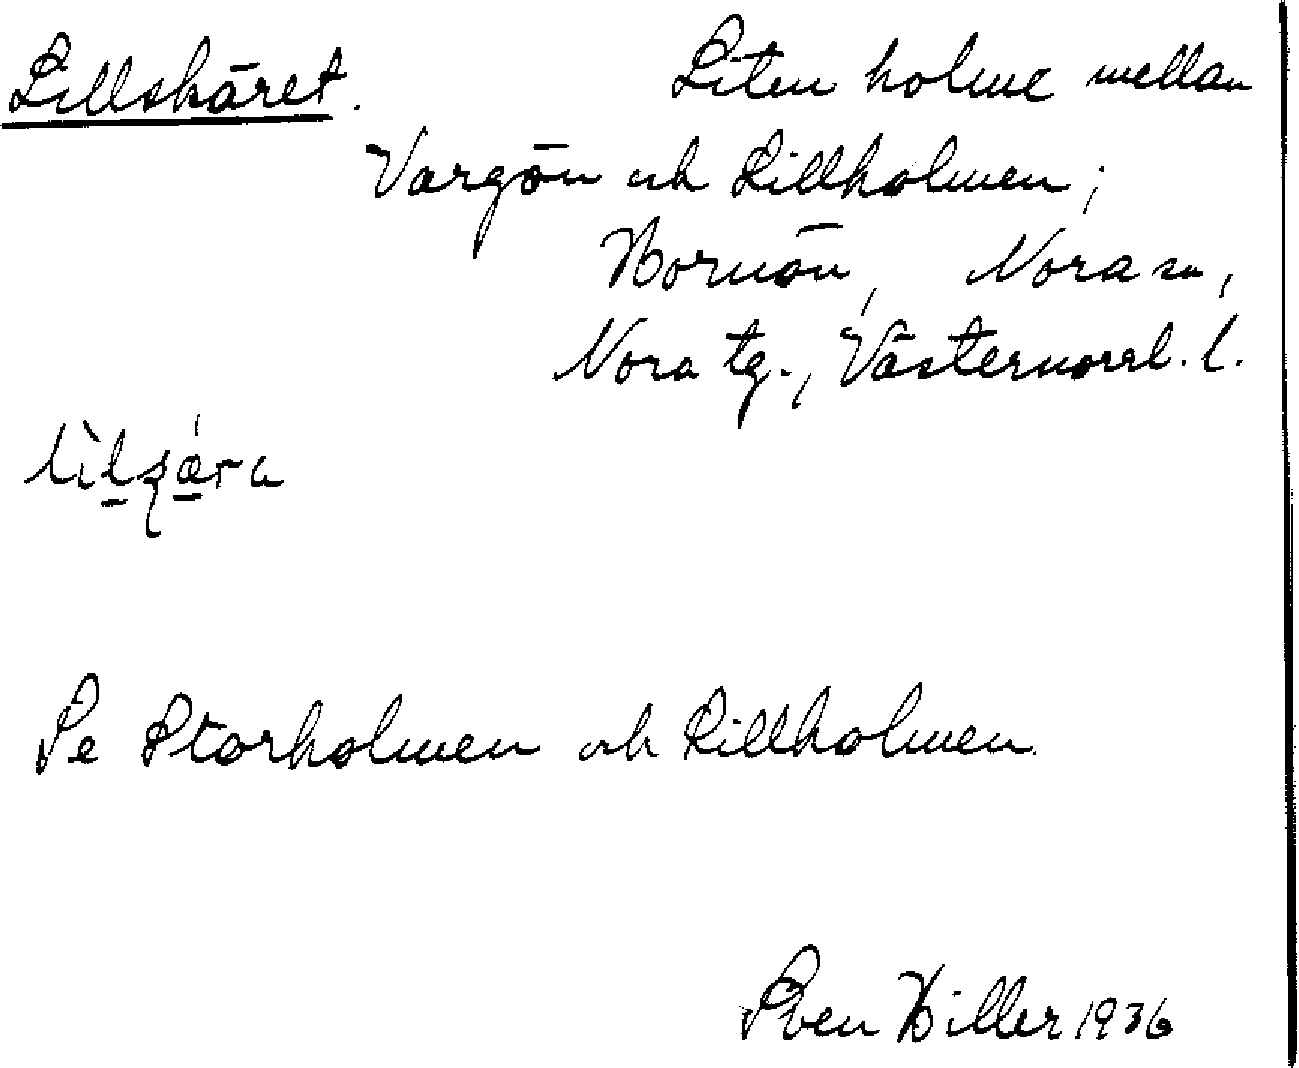 Lillskäret. Liten holme mellan
Vargön och Lillholmen;
Hornön, Nora sn,
Nora tg., Västernorrl. l.
Se Storholmen och Lillholmen.
Sven Hiller 1936